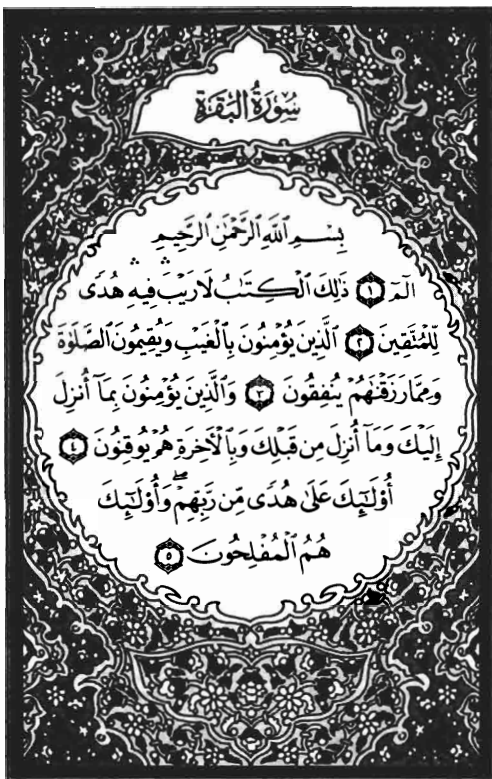 سُورَةُ الْبَقَرَةِ
بِسْمِ ٱللَّهِ ٱلرَّحْمَٰنِ ٱلرَّحِيمِ
الٓمٓ ١ ذَٰلِكَ ٱلْكِتَٰبُ لَا رَيْبَ ۛ فِيهِ ۛ هُدًى
لِّلْمُتَّقِينَ ٢ ٱلَّذِينَ يُؤْمِنُونَ بِٱلْغَيْبِ وَيُقِيمُونَ ٱلصَّلَوٰةَ
وَمِمَّا رَزَقْنَٰهُمْ يُنفِقُونَ ٣ وَٱلَّذِينَ يُؤْمِنُونَ بِمَآ أُنزِلَ
إِلَيْكَ وَمَآ أُنزِلَ مِن قَبْلِكَ وَبِٱلْأٓخِرَةِ هُمْ يُوقِنُونَ ٤
أُو۟لَٰٓئِكَ عَلَىٰ هُدًى مِّن رَّبِّهِمْ ۖ وَأُو۟لَٰٓئِكَ
هُمُ ٱلْمُفْلِحُونَ ٥